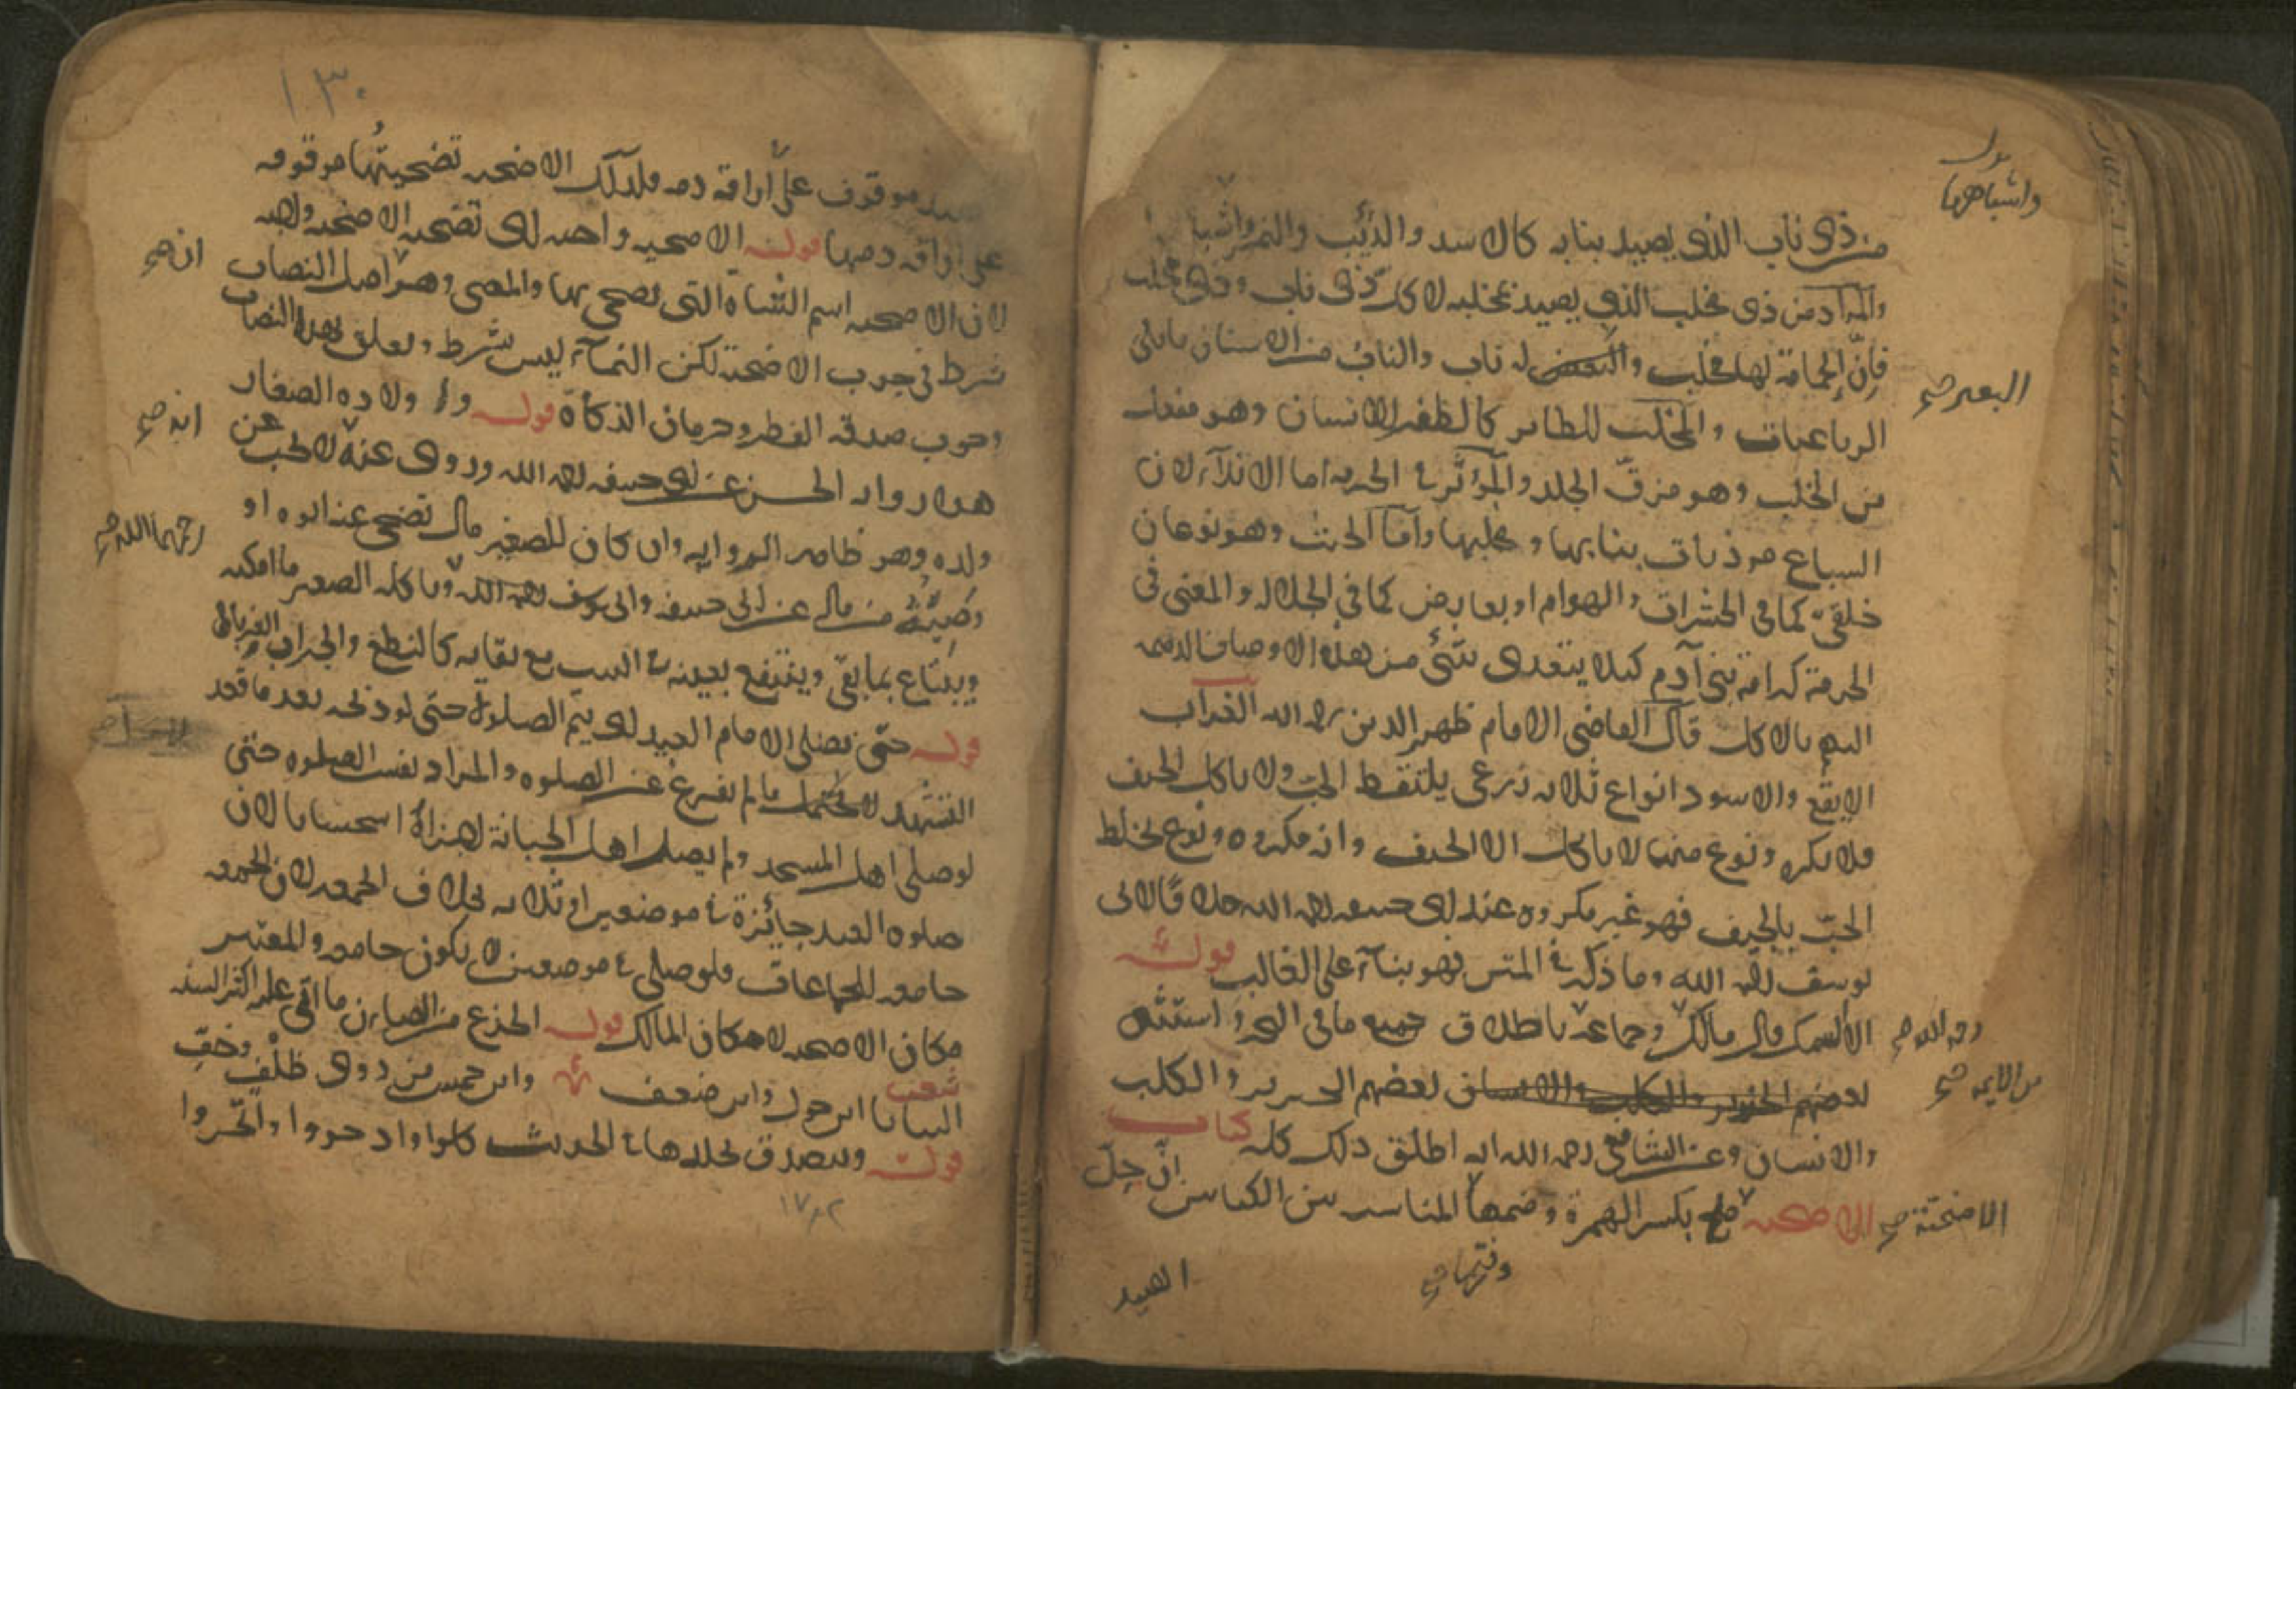 من ذى ناب الذى يصيد بنابه كالاسد والذئب والنمر واشبا
والمراد من ذى مخلب الذى يصيد بمخلبه لا كل ذى ناب وذى مخلب
فان الحمامة لها مخلب والبعير له ناب والناب من الاسنان ما يلى
الرباعيات والمخلب للطاير كالظفر للانسان وهو مفعل
من الخلب وهو مزق الجلد والمؤثر فى الحرمة اما الايذاء لان
السباع موذيات بنابها ومخلبها واما الخبث وهو نوعان
خلقى كما فى الحشرات والهوام او بعارض كما فى الجلالة والمعنى فى
الحرمة كرامة بنى آدم كيلا يتعدى شئ من هذه الاوصاف الذميمة
اليهم بالاكل قال القاضى الامام ظهير الدين رحمه الله الغراب
الابقع والاسود انواع ثلاثة زرعى يلتقط الحب ولا ياكل الجيف
فلا يكره ونوع منها لا ياكل الا الجيف وانه مكروه ونوع يخلط
الحب بالجيف فهو غير مكروه عند ابى حنيفه رحمه الله خلافا لابى
يوسف رحمه الله وما ذكر فى المتن فهو بناء على الغالب قوله
الا السمك وقال مالك وجماعة باطلاق جميع ما فى البحر واستثنى
بعضهم الخنزير والكلب والانسان بعضهم الخنزير والكلب
والانسان وعن الشافعى رحمه الله انه اطلق ذلك كله كتاب
الاضحية بكسر الهمزة وضمها المناسبة بين الكتابين ان حل
واشباههما
البعير صح
رحمه الله صح
من الايمه صح
الاضحية صح
وفتحها صح
الصيد
١٣٠
الصيد موقوف على اراقة دمه فكذلك الاضحية تضحيتها موقوفه
على اراقه دمها قوله الاضحيه واجبه اى تضحيه الاضحيه واجبه
لان الاضحيه اسم الشاة التى يضحى بها والمضى وهو اصل النصاب
شرط فى وجوب الاضحية لكن النماء ليس بشرط وتعلق بهذا النصاب
وجوب صدقه الفطر وحرمان الزكاة قوله ولاولاده الصغار
هذا رواية الحسن عن ابى حنيفه رحمه الله وروى عنه لا تجب عن
ولده وهو ظاهر الروايه وان كان للصغير مال تضحى عنه ابوه او
وصيه من ماله عن ابى حنيفه وابى يوسف رحمه الله وياكله الصغير ما امكنه
ويبتاع بما بقى وينتفع بعينه فى البيت مع بقايه كالنطع والجراب والغربال
قوله حتى يصلى الامام العيد اى يتم الصلوة حتى لو ذبحه بعد ما قعد
التشهد لا يحتمل ما لم يفرغ عن الصلوه والمراد نفس الصلوه حتى
لو صلى اهل المسجد ولم يصل اهل الجبانة اجزاه استحسانا لان
صلوه العيد جائزة فى موضعين او ثلاثه بخلاف الجمعه لان الجمعه
جامعه للجماعات فلو صلى فى موضعين لا يكون جامعه والمعتبر
مكان الاضحيه لا مكان المالك قوله الجذع من الضان ما اتى عليه اكثر السنه
الثنايا ابن حول وابن ضعف وابن خمس من ذوى ظلف وخف
قوله ويتصدق بجلدها فى الحديث كلوا وادخروا واتجروا
ان صح
انه صح
رحمهما الله صح